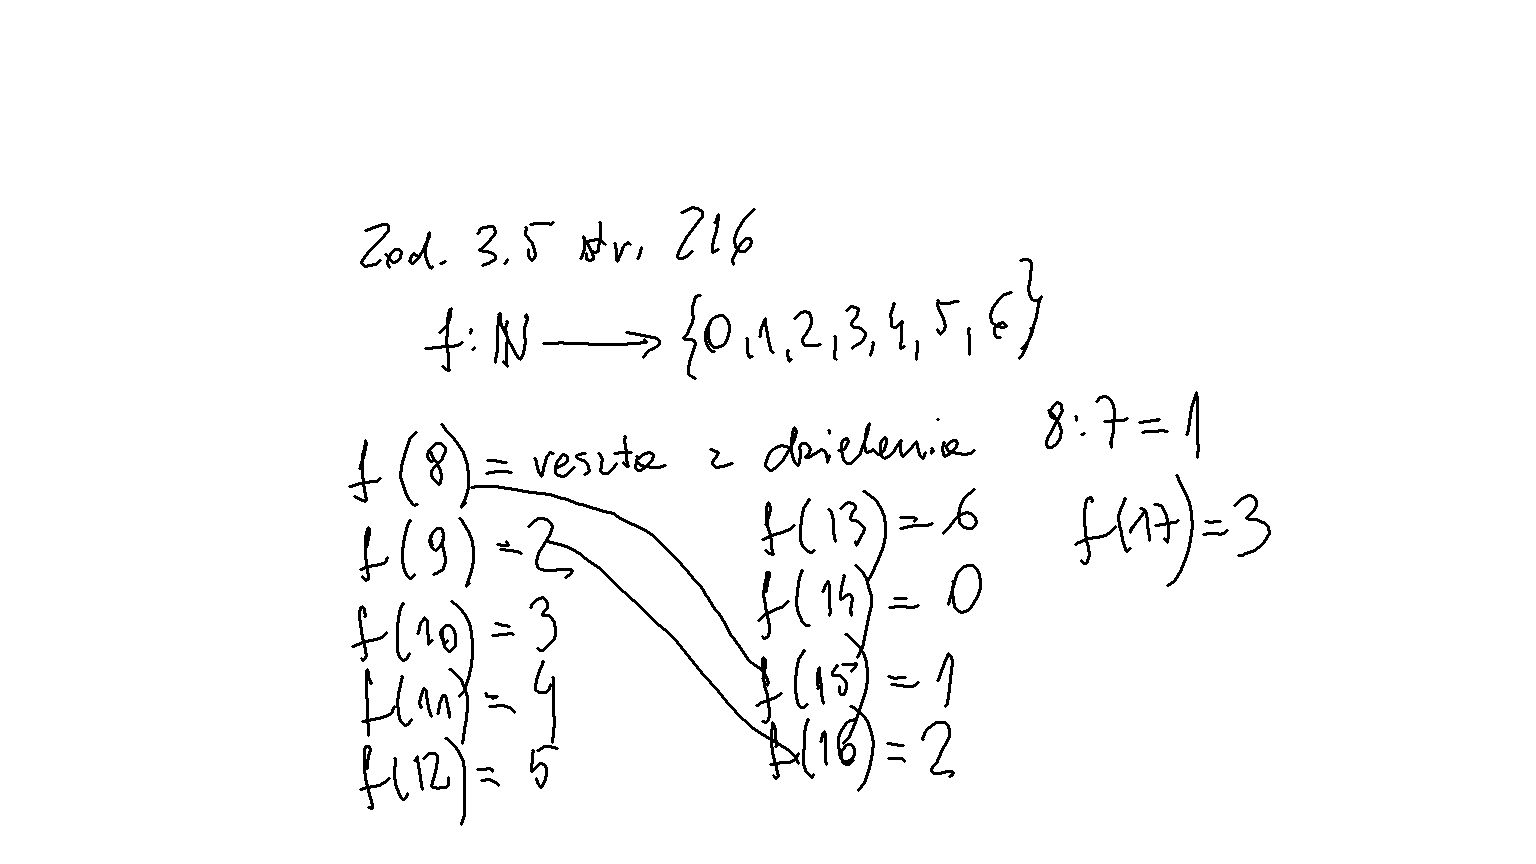 Zad. 3.5 str. 216
f: ℕ ⟶ {0,1,2,3,4,5,6}
f(8) = reszta z dzielenia 8:7=1
f(9) = 2
f(10) = 3
f(11) = 4
f(12) = 5
f(13) = 6
f(14) = 0
f(15) = 1
f(16) = 2
f(17) = 3